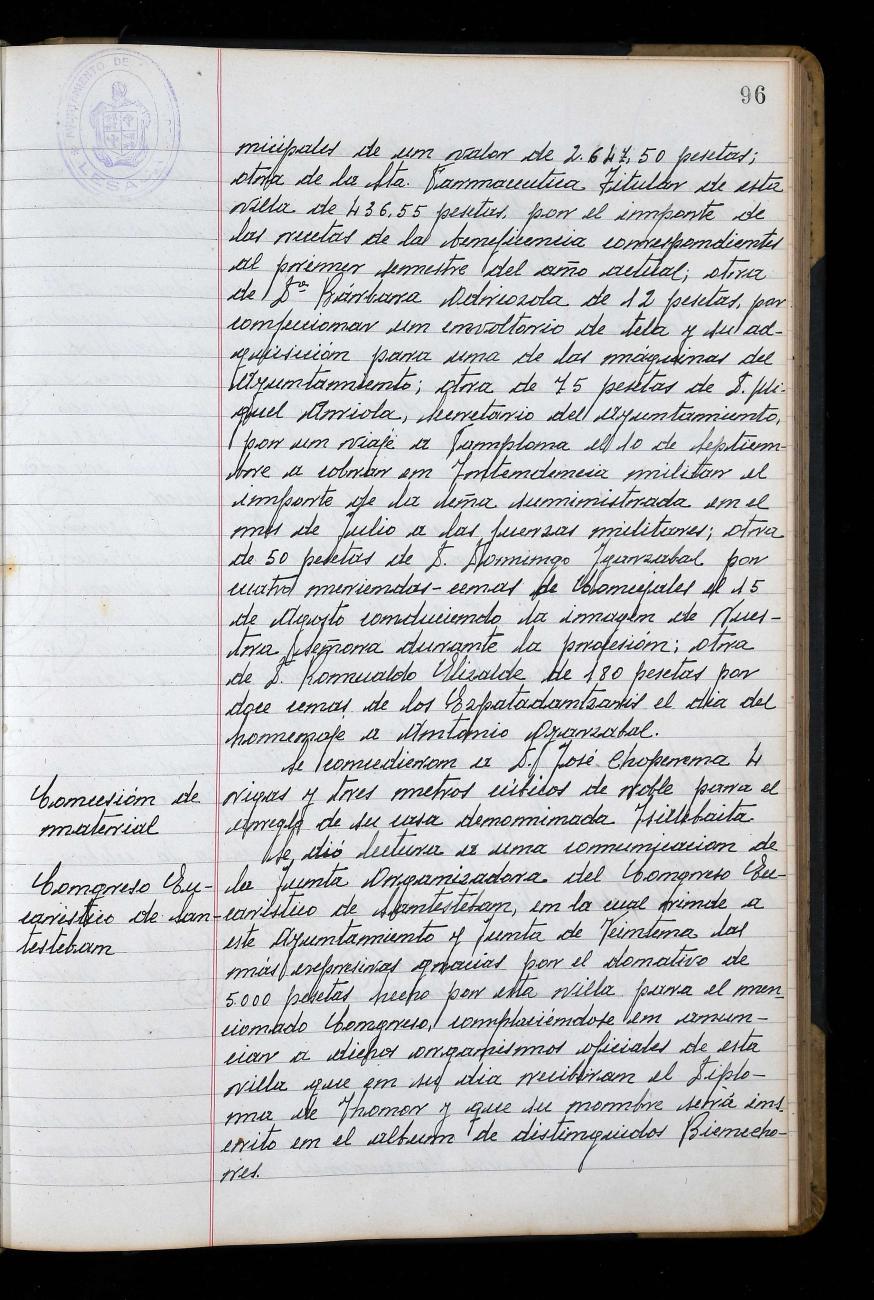 96
AYUNTAMIENTO DE LESACA
nicipales de un valor de 2.647,50 pesetas;
otra de la Sta. Farmaceutica Titular de esta
villa de 436,55 pesetas, por el importe de
las recetas de la beneficencia correspondientes
al primer semestre del año actual; otra
de Dª Bárbara Adiozola de 12 pesetas, por
confeccionar un envoltorio de tela y su ad-
quisición para una de las máquinas del
Ayuntamiento; otra de 75 pesetas de D. Mi-
guel Arriola, secretario del Ayuntamiento,
por un viaje a Pamplona el 10 de Septiem-
bre a cobrar en Intendencia militar el
importe de la leña suministrada en el
mes de Julio a las fuerzas militares; otra
de 50 pesetas de D. Domingo Igarzabal por
cuatro meriendas-cenas de Concejales el 15
de Agosto conduciendo la imagen de Nues-
tra Señora durante la procesión; otra
de D. Romualdo Elizalde de 180 pesetas por
doce cenas de los Ezpatadantzaris el dia del
homenaje a Antonio Oyarzabal.
Concesión de
material
Se concedieron a D. José Choperena 4
vigas y tres metros cúbicos de roble para el
arreglo de su casa denominada Tsillebaita
Congreso Eu-
carístico de San-
testeban
Se dió lectura a una comunicacion de
la Junta Organizadora del Congreso Eu-
carístico de Santesteban, en la cual rinde a
este Ayuntamiento y Junta de Veintena las
más expresivas gracias por el donativo de
5.000 pesetas hecho por esta villa para el men-
cionado Congreso, complaciéndose en anun-
ciar a dichos organismos oficiales de esta
villa que en su dia recibiran el Diplo-
ma de Honor y que su nombre será ins-
crito en el album de distinguidos Bienecho-
res.